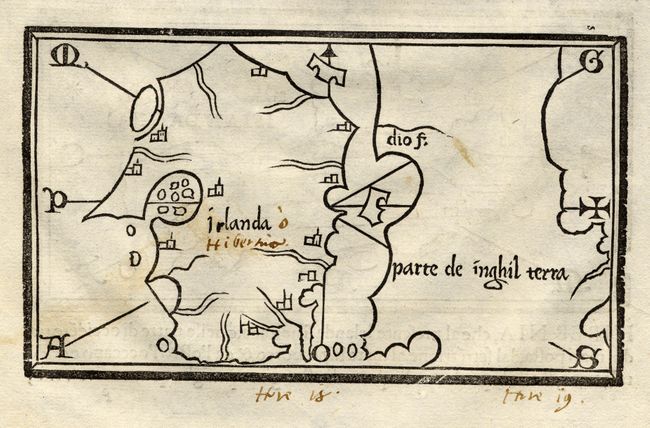 M G
dio f.
P
irlanda ò
Hibernia
D
parte de inghil terra
A S
Hore 18. Hore 19.